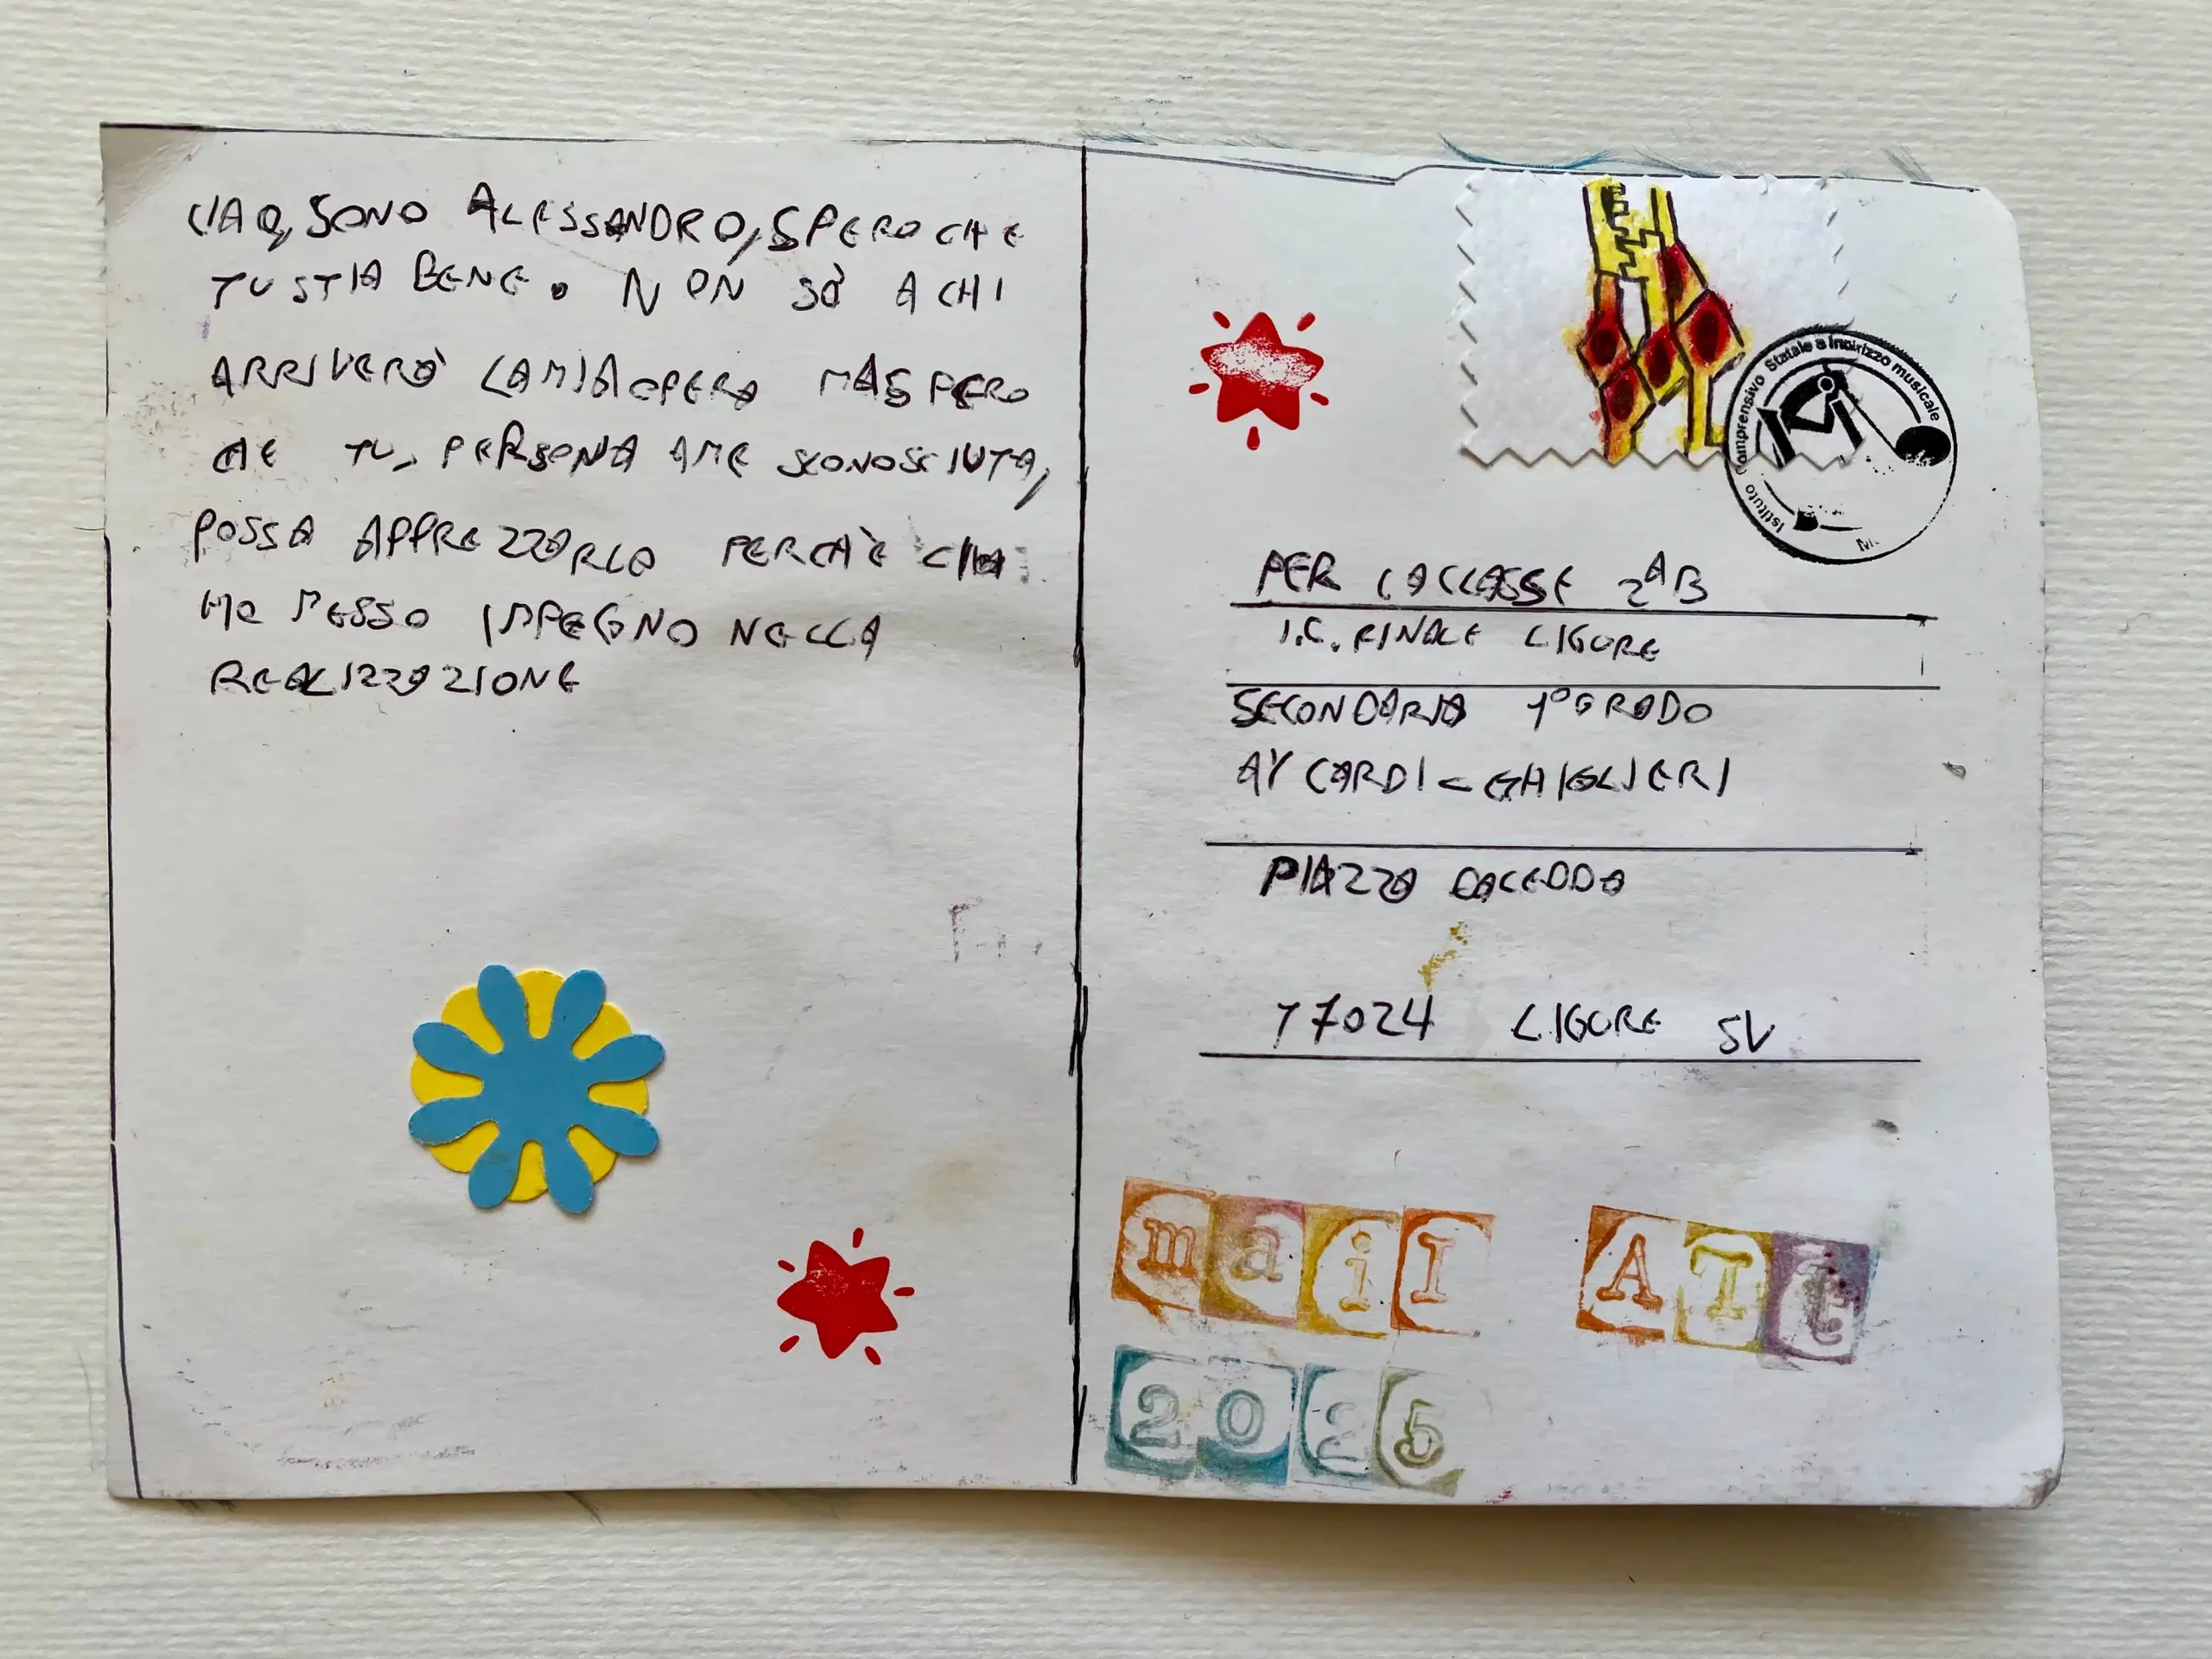 CIAO, SONO ALESSANDRO, SPERO CHE
TU STIA BENE. NON SÒ A CHI
ARRIVERÀ LA MIA OPERA MA SPERO
CHE TU, PERSONA A ME SCONOSCIUTA,
POSSA APPREZZARLA PERCHÈ CI
HO MESSO IMPEGNO NELLA
REALIZZAZIONE
Istituto Comprensivo Statale a Indirizzo musicale
PER LA CLASSE 2ªB
I.C. FINALE LIGURE
SECONDARIA 1º GRADO
AYCARDI - GHIGLIERI
PIAZZA
17024 LIGURE SV
mail ATt
2025